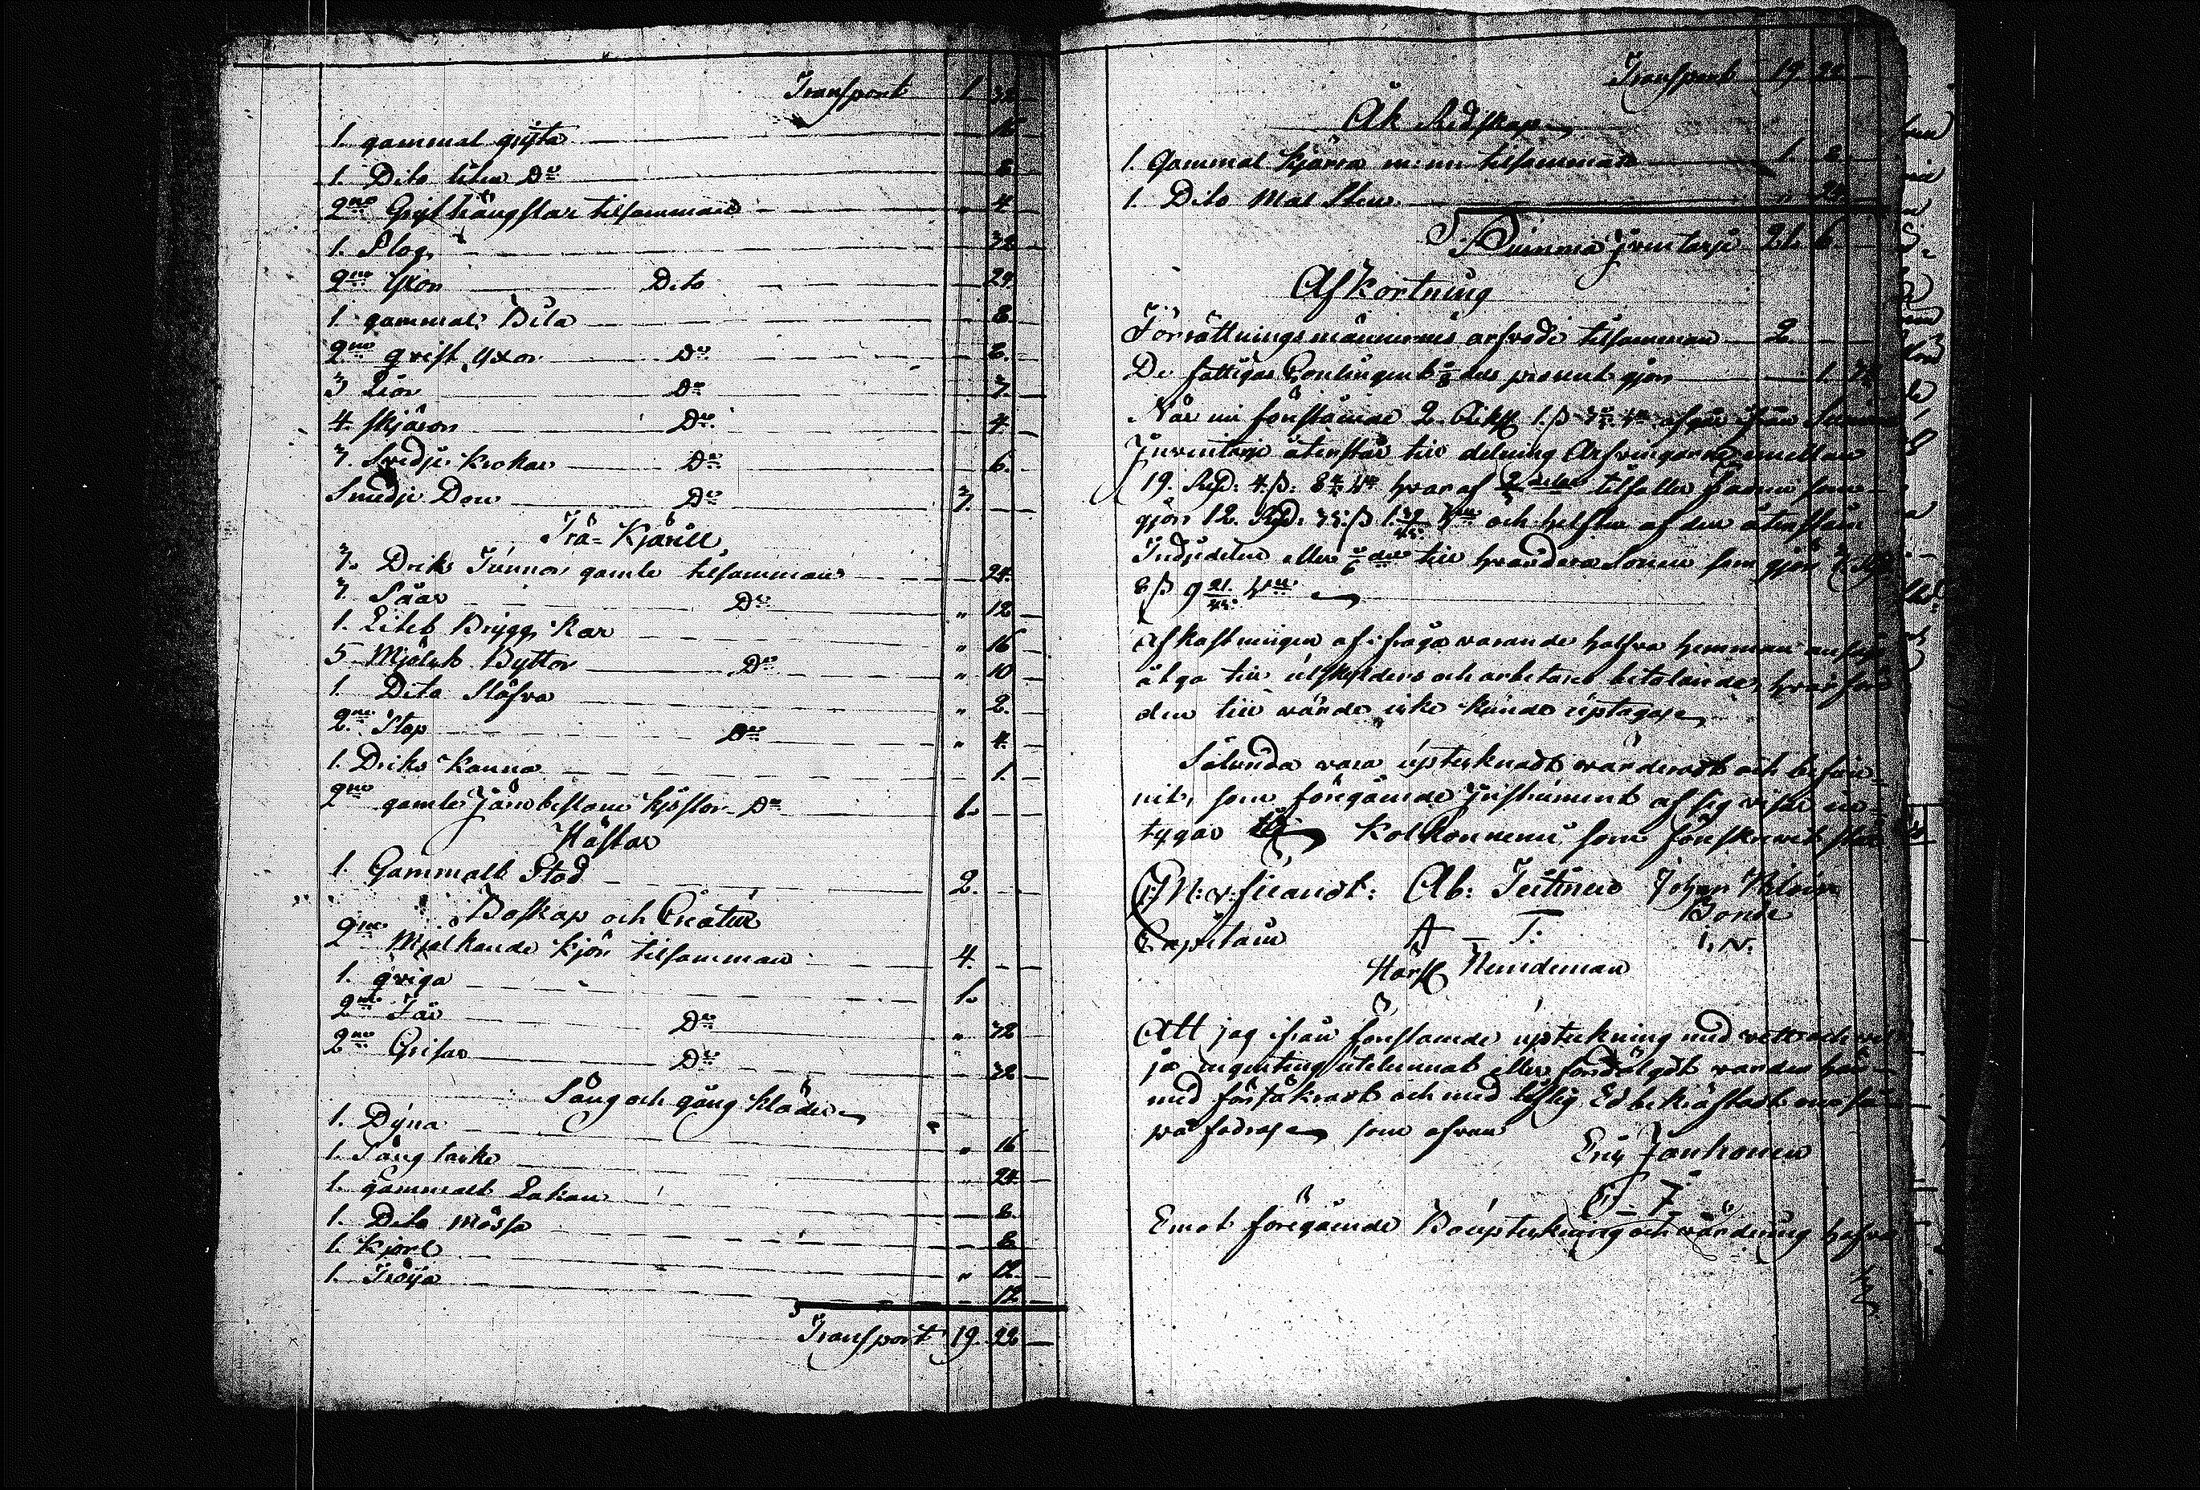 Transport 1. 32.
1. gammal gryta 16
1. Dito liten Do 8.
2ne Gryt hängslar tilsamman 4
1. Plog 32
2ne Yxor Dito 24.
1. gammal Bila 8.
2ne qvist Yxor Do 8.
3 Liar Do 7.
4. skjäror Do 4.
7. Svedje krokar Do 6.
Smidje Don Do 7.
Trä-Kjärill
7. Driks Tunnor gamle tilsammans 24.
7 Såar Do " 12
1. Litet Brygg kar " 16
5 Mjölk Byttor Do " 10
1. Dito Släfva " 2.
2ne Stop Do " 4.
1. Driks kanna 1.
2ne gamle Järnbeslane kjistor Do 1.
Hästar
1. Gammalt Stod 2.
Boskap och Creatur
2ne Mjölkande kjör tilsamman 4.
1. qviga 1.
2ne Får Do " 32
2ne Grisar Do 32
Säng och gång Kläder
1. Dyna " 16
1. Säng täcke 24.
1. gammalt Lakan 8.
1. Dito Mössa 8.
1. Kjorl " 12.
1. Tröija 12
Transport 19. 22
Transport 19. 22
Åk Redskap
1. Gammal kjärra m: m: tilsammans 1. 8.
1. Dito Mal Sten 24.
Summa Inventarje 21. 6.
Afkortning
Förrättningsmännernes arfvode tilsamman 2.
De fattigas Contingent 1/8 dels procent gjör 1.
När nu förestående 2. Riksd 1. ß afgår ifrån Summa
Inventarje återstår till delning Arfvingarne emellan
19. Rxd: 4. ß: 8 hvar af 2/3 delar tilfaller som
gjör 12. Rxd: 35. ß 1. och helften af den återstående
Tridjedelen eller 1/6 del till hvardera Sonen som gjör 3 Rxd
8 ß 9 21/45
Afkastningen af i fråga varande halfva hemman anses
åtga till utskylders och arbetares betalande, hvarföre
den till värde icke kunde uptagas
Sålunda vara uptecknadt värderadt och befun-
nit, som föregående Instrument af sig visar in-
tygar Kolkonniemi som förrskrevit står
G: M: v: Ab: Johan
Bonde
Capitain A — T: I. N.
Härs Nemdeman
Att jag ifrån förestående upteckning med vett och vil-
ja ingenting utelemnat eller fördålgdt varder här-
med försäkradt och med liflig Ed bekräftadt om så
på fodras som ofvan
Eric Jänhonen
E — J.
Emot föregående Boupteckning och värdering hafva